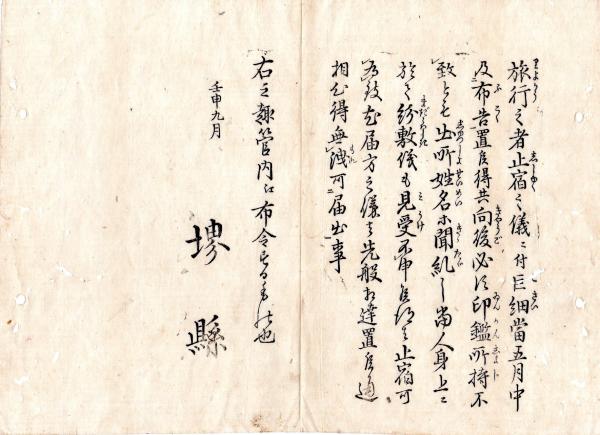 旅行之者止宿之儀ニ付巨細當五月中
及布告置候得共向後必す印鑑所持不
致とも出所姓名等聞糺し當人身上ニ
於て紛敷儀も見受不申候ハヽ止宿可
為致尤届方之儀は先般相達置候通
相心得無洩可届出事
右之趣管内江布令するもの也
壬申九月
堺縣